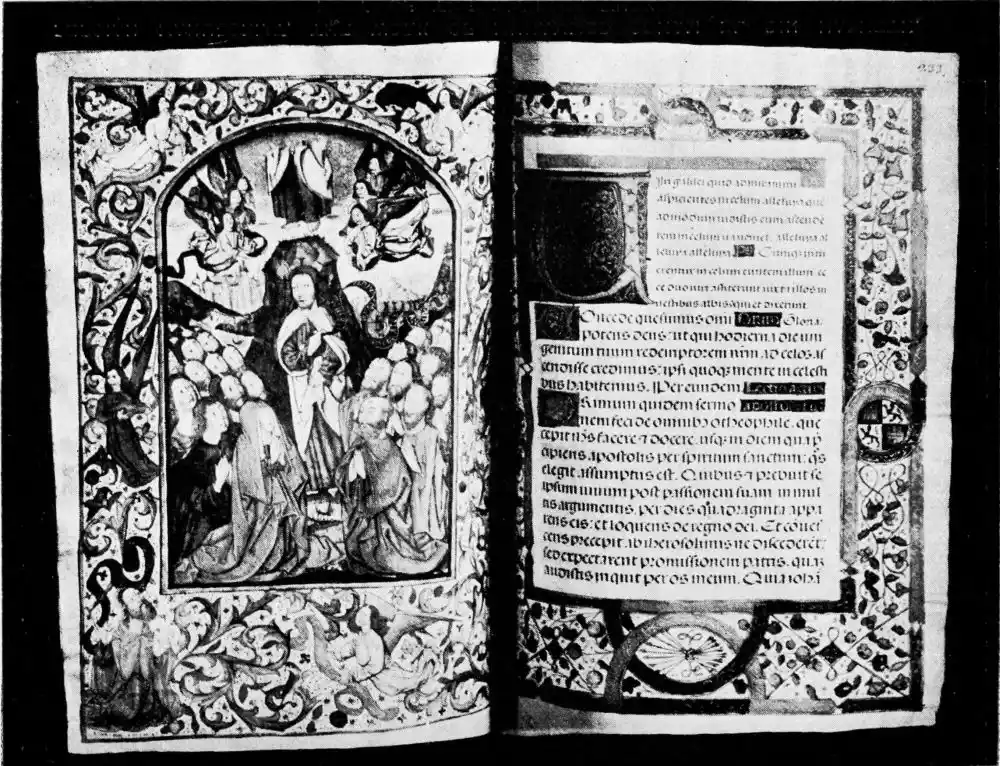 233
Viri galilei quid admiramini
aspicientes in celum alleluya que
admodum vidistis eum ascende
tem in celum ita veniet. alleluya al
leluya alleluya. ps Cumq; intu
erentur in celum euntem illum ec
ce duo viri astiterunt iuxta illos in
vestibus albis qui et dixerunt
Oncede quesumus omi Gloria.
potens deus: ut qui hodierna die uni
genitum tuum redemptorem nrm ad celos as
cendisse credimus: ipsi quoq; mente in celesti
bus habitemus. Per eundem
Rimum quidem sermo
nem feci de omnibus o theophile. que
cepit ihs facere ⁊ docere. usq; in diem qua p
cipiens apostolis per spiritum sanctum: qs
elegit. assumptus est. Quibus ⁊ prebuit se
ipsum vivum post passionem suam in mul
tis argumentis. per dies quadraginta appa
rens eis: et loquens de regno dei. Et coves
cens precepit. ab iherosolimis ne discederet:
sed expectarent promissionem patris. quaz
audistis inquit per os meum. Quia ioha